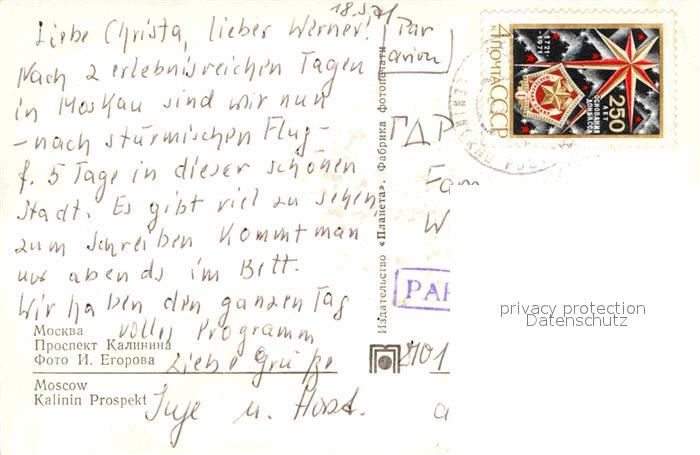 18.5.71
Liebe Christa, lieber Werner!
Nach 2 erlebnisreichen Tagen
in Moskau sind wir nun
- nach stürmischen Flug -
f. 5 Tage in dieser schönen
Stadt. Es gibt viel zu sehen,
zum schreiben kommt man
nur abends im Bett.
Wir haben den ganzen Tag
volles Programm
Liebe Grüße
Inge u. Horst.
Москва
Проспект Калинина
Фото И. Егорова
Moscow
Kalinin Prospekt
Издательство «Планета». Фабрика фотопечати
Par
avion
ГДР
Fam
W
PAR
8101
a
4к ПОЧТА СССР
1721-
-1971
250
ЛЕТ
ОСНОВАНИЯ
ДОНБАССА
privacy protection
Datenschutz